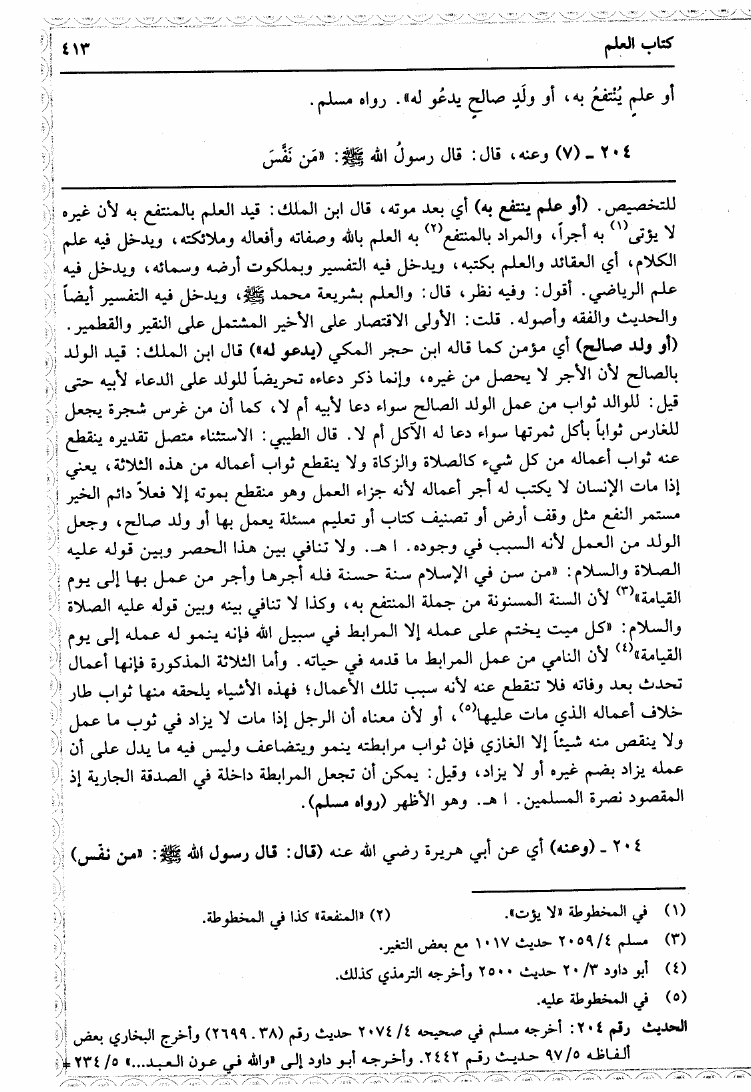 كتاب العلم ٤١٣
أو علمٍ يُنْتفعُ به، أو ولَدٍ صالحٍ يدعُو له». رواه مسلم.
٢٠٤ ـ (٧) وعنه، قال: قال رسولُ الله ﷺ: «مَن نَفَّسَ
للتخصيص. (أو علم ينتفع به) أي بعد موته، قال ابن الملك: قيد العلم بالمنتفع به لأن غيره
لا يؤتى(١) به أجراً، والمراد بالمنتفع(٢) به العلم بالله وصفاته وأفعاله وملائكته، ويدخل فيه علم
الكلام، أي العقائد والعلم بكتبه، ويدخل فيه التفسير وبملكوت أرضه وسمائه، ويدخل فيه
علم الرياضي. أقول: وفيه نظر، قال: والعلم بشريعة محمد ﷺ، ويدخل فيه التفسير أيضاً
والحديث والفقه وأصوله. قلت: الأولى الاقتصار على الأخير المشتمل على النقير والقطمير.
(أو ولد صالح) أي مؤمن كما قاله ابن حجر المكي (يدعو له») قال ابن الملك: قيد الولد
بالصالح لأن الأجر لا يحصل من غيره، وإنما ذكر دعاءه تحريضاً للولد على الدعاء لأبيه حتى
قيل: للوالد ثواب من عمل الولد الصالح سواء دعا لأبيه أم لا، كما أن من غرس شجرة يجعل
للغارس ثواباً بأكل ثمرتها سواء دعا له الآكل أم لا. قال الطيبي: الاستثناء متصل تقديره ينقطع
عنه ثواب أعماله من كل شيء كالصلاة والزكاة ولا ينقطع ثواب أعماله من هذه الثلاثة، يعني
إذا مات الإنسان لا يكتب له أجر أعماله لأنه جزاء العمل وهو منقطع بموته إلا فعلاً دائم الخير
مستمر النفع مثل وقف أرض أو تصنيف كتاب أو تعليم مسئلة يعمل بها أو ولد صالح، وجعل
الولد من العمل لأنه السبب في وجوده. ا هـ. ولا تنافي بين هذا الحصر وبين قوله عليه
الصلاة والسلام: «من سن في الإسلام سنة حسنة فله أجرها وأجر من عمل بها إلى يوم
القيامة»(٣) لأن السنة المسنونة من جملة المنتفع به، وكذا لا تنافي بينه وبين قوله عليه الصلاة
والسلام: «كل ميت يختم على عمله إلا المرابط في سبيل الله فإنه ينمو له عمله إلى يوم
القيامة»(٤) لأن النامي من عمل المرابط ما قدمه في حياته. وأما الثلاثة المذكورة فإنها أعمال
تحدث بعد وفاته فلا تنقطع عنه لأنه سبب تلك الأعمال؛ فهذه الأشياء يلحقه منها ثواب طار
خلاف أعماله الذي مات عليها(٥)، أو لأن معناه أن الرجل إذا مات لا يزاد في ثوب ما عمل
ولا ينقص منه شيئاً إلا الغازي فإن ثواب مرابطته ينمو ويتضاعف وليس فيه ما يدل على أن
عمله يزاد بضم غيره أو لا يزاد، وقيل: يمكن أن تجعل المرابطة داخلة في الصدقة الجارية إذ
المقصود نصرة المسلمين. ا هـ. وهو الأظهر (رواه مسلم).
٢٠٤ ـ (وعنه) أي عن أبي هريرة رضي الله عنه (قال: قال رسول الله ﷺ: «من نفّس)
(١) في المخطوطة «لا يؤت». (٢) «المنفعة» كذا في المخطوطة.
(٣) مسلم ٤/ ٢٠٥٩ حديث ١٠١٧ مع بعض التغير.
(٤) أبو داود ٣/ ٢٠ حديث ٢٥٠٠ وأخرجه الترمذي كذلك.
(٥) في المخطوطة عليه.
الحديث رقم ٢٠٤: أخرجه مسلم في صحيحه ٤/ ٢٠٧٤ حديث رقم (٣٨ ـ ٢٦٩٩) وأخرج البخاري بعض
ألفاظه ٥/ ٩٧ حديث رقم ٢٤٤٢. وأخرجه أبو داود إلى «والله في عون العبد...» ٥/ ٢٣٤